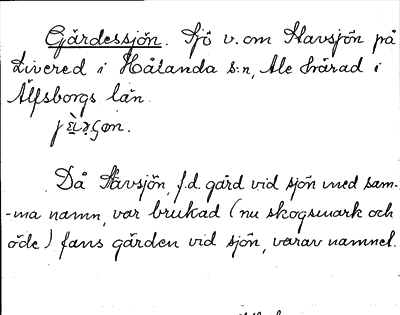 Gärdessjön. Sjö v. om Stavsjön på
Livered i Hålanda s:n, Ale härad i
Älfsborgs län.
Då Stavsjön, f.d. gård vid sjön med sam-
-ma namn, var brukad (nu skogsmark och
öde) fans gärden vid sjön, varav namnet.